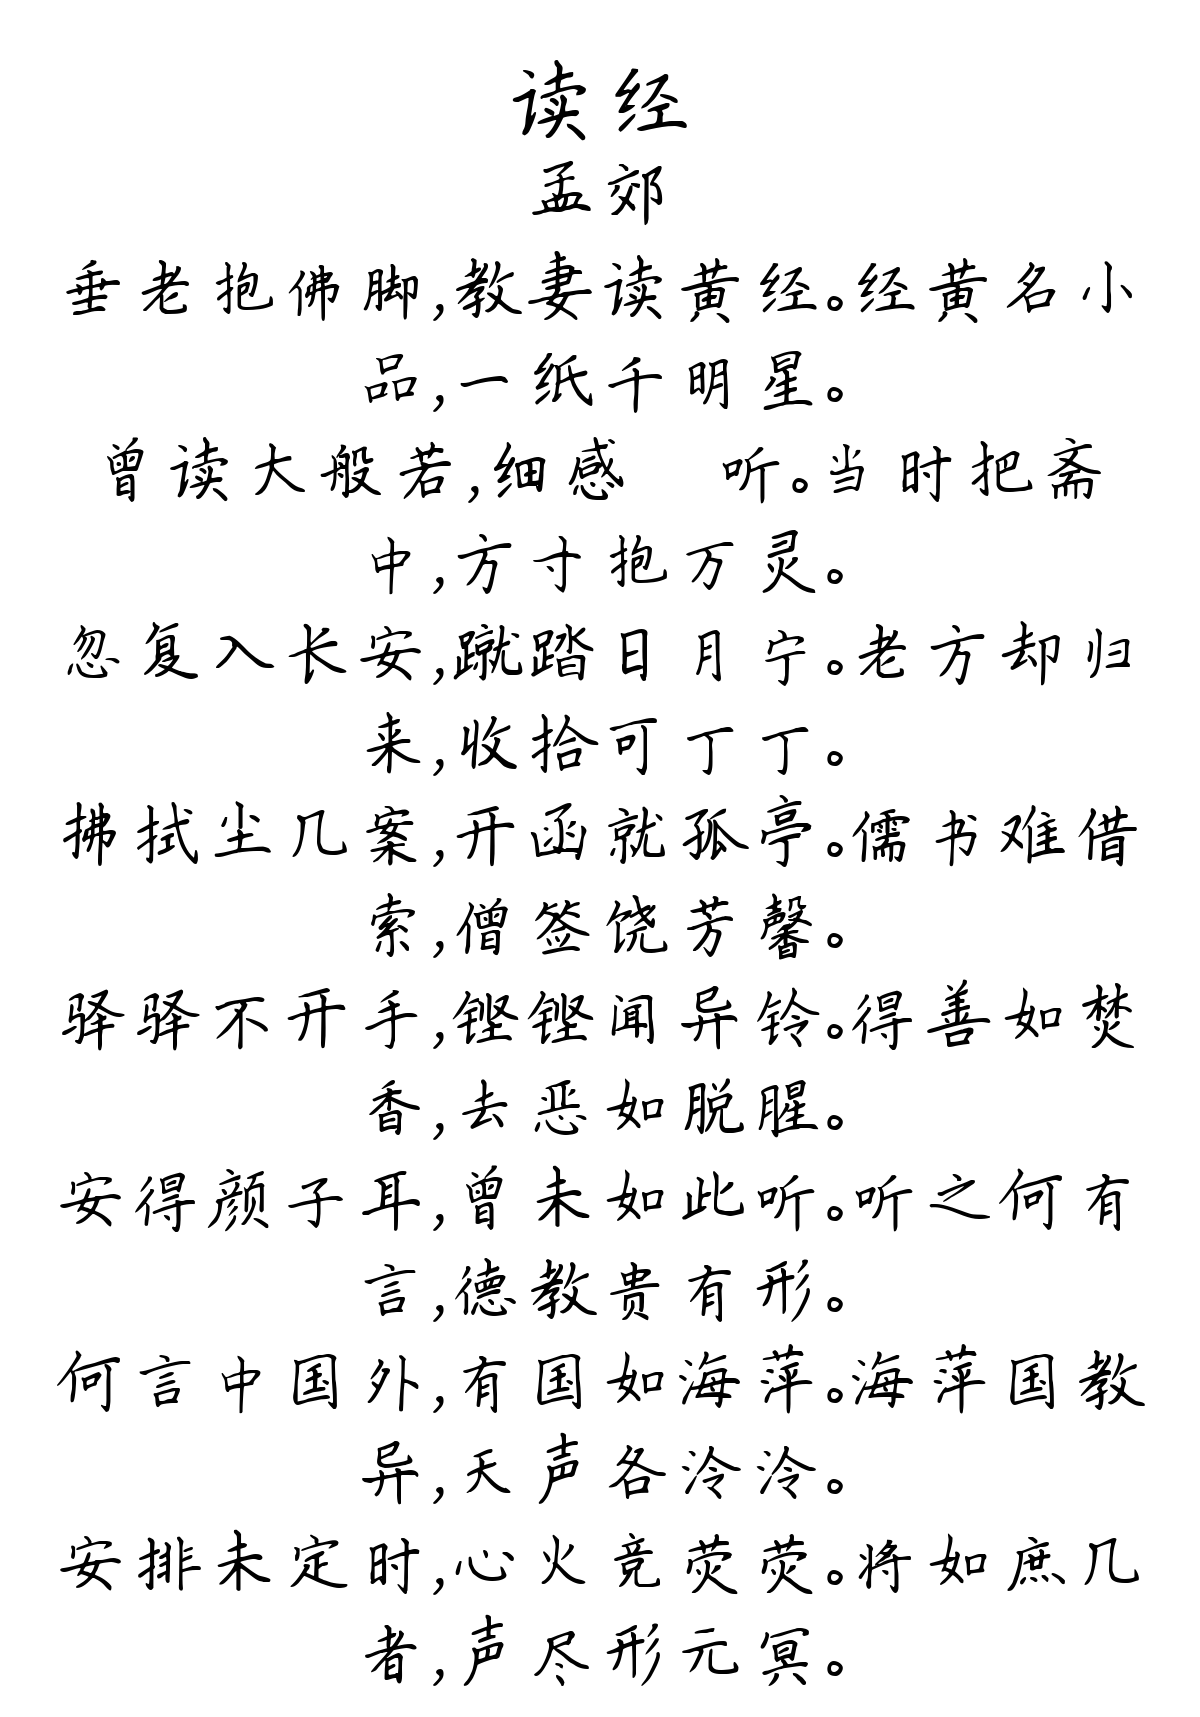 读经
孟郊
垂老抱佛脚,教妻读黄经。经黄名小
品,一纸千明星。
曾读大般若,细感 听。当时把斋
中,方寸抱万灵。
忽复入长安,蹴踏日月宁。老方却归
来,收拾可丁丁。
拂拭尘几案,开函就孤亭。儒书难借
索,僧签饶芳馨。
驿驿不开手,铿铿闻异铃。得善如焚
香,去恶如脱腥。
安得颜子耳,曾未如此听。听之何有
言,德教贵有形。
何言中国外,有国如海萍。海萍国教
异,天声各泠泠。
安排未定时,心火竞荧荧。将如庶几
者,声尽形元冥。